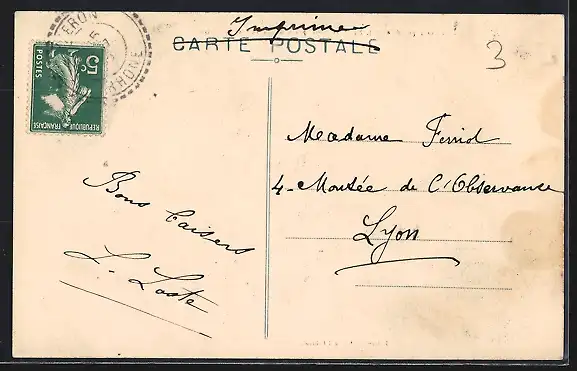 Imprimé
CARTE POSTALE
3
ERON
RHONE
5c
POSTES
REPUBLIQUE
FRANÇAISE
Madame Ferriol
4 - Montée de l'Observance
Lyon
Bons baisers
L. Laste